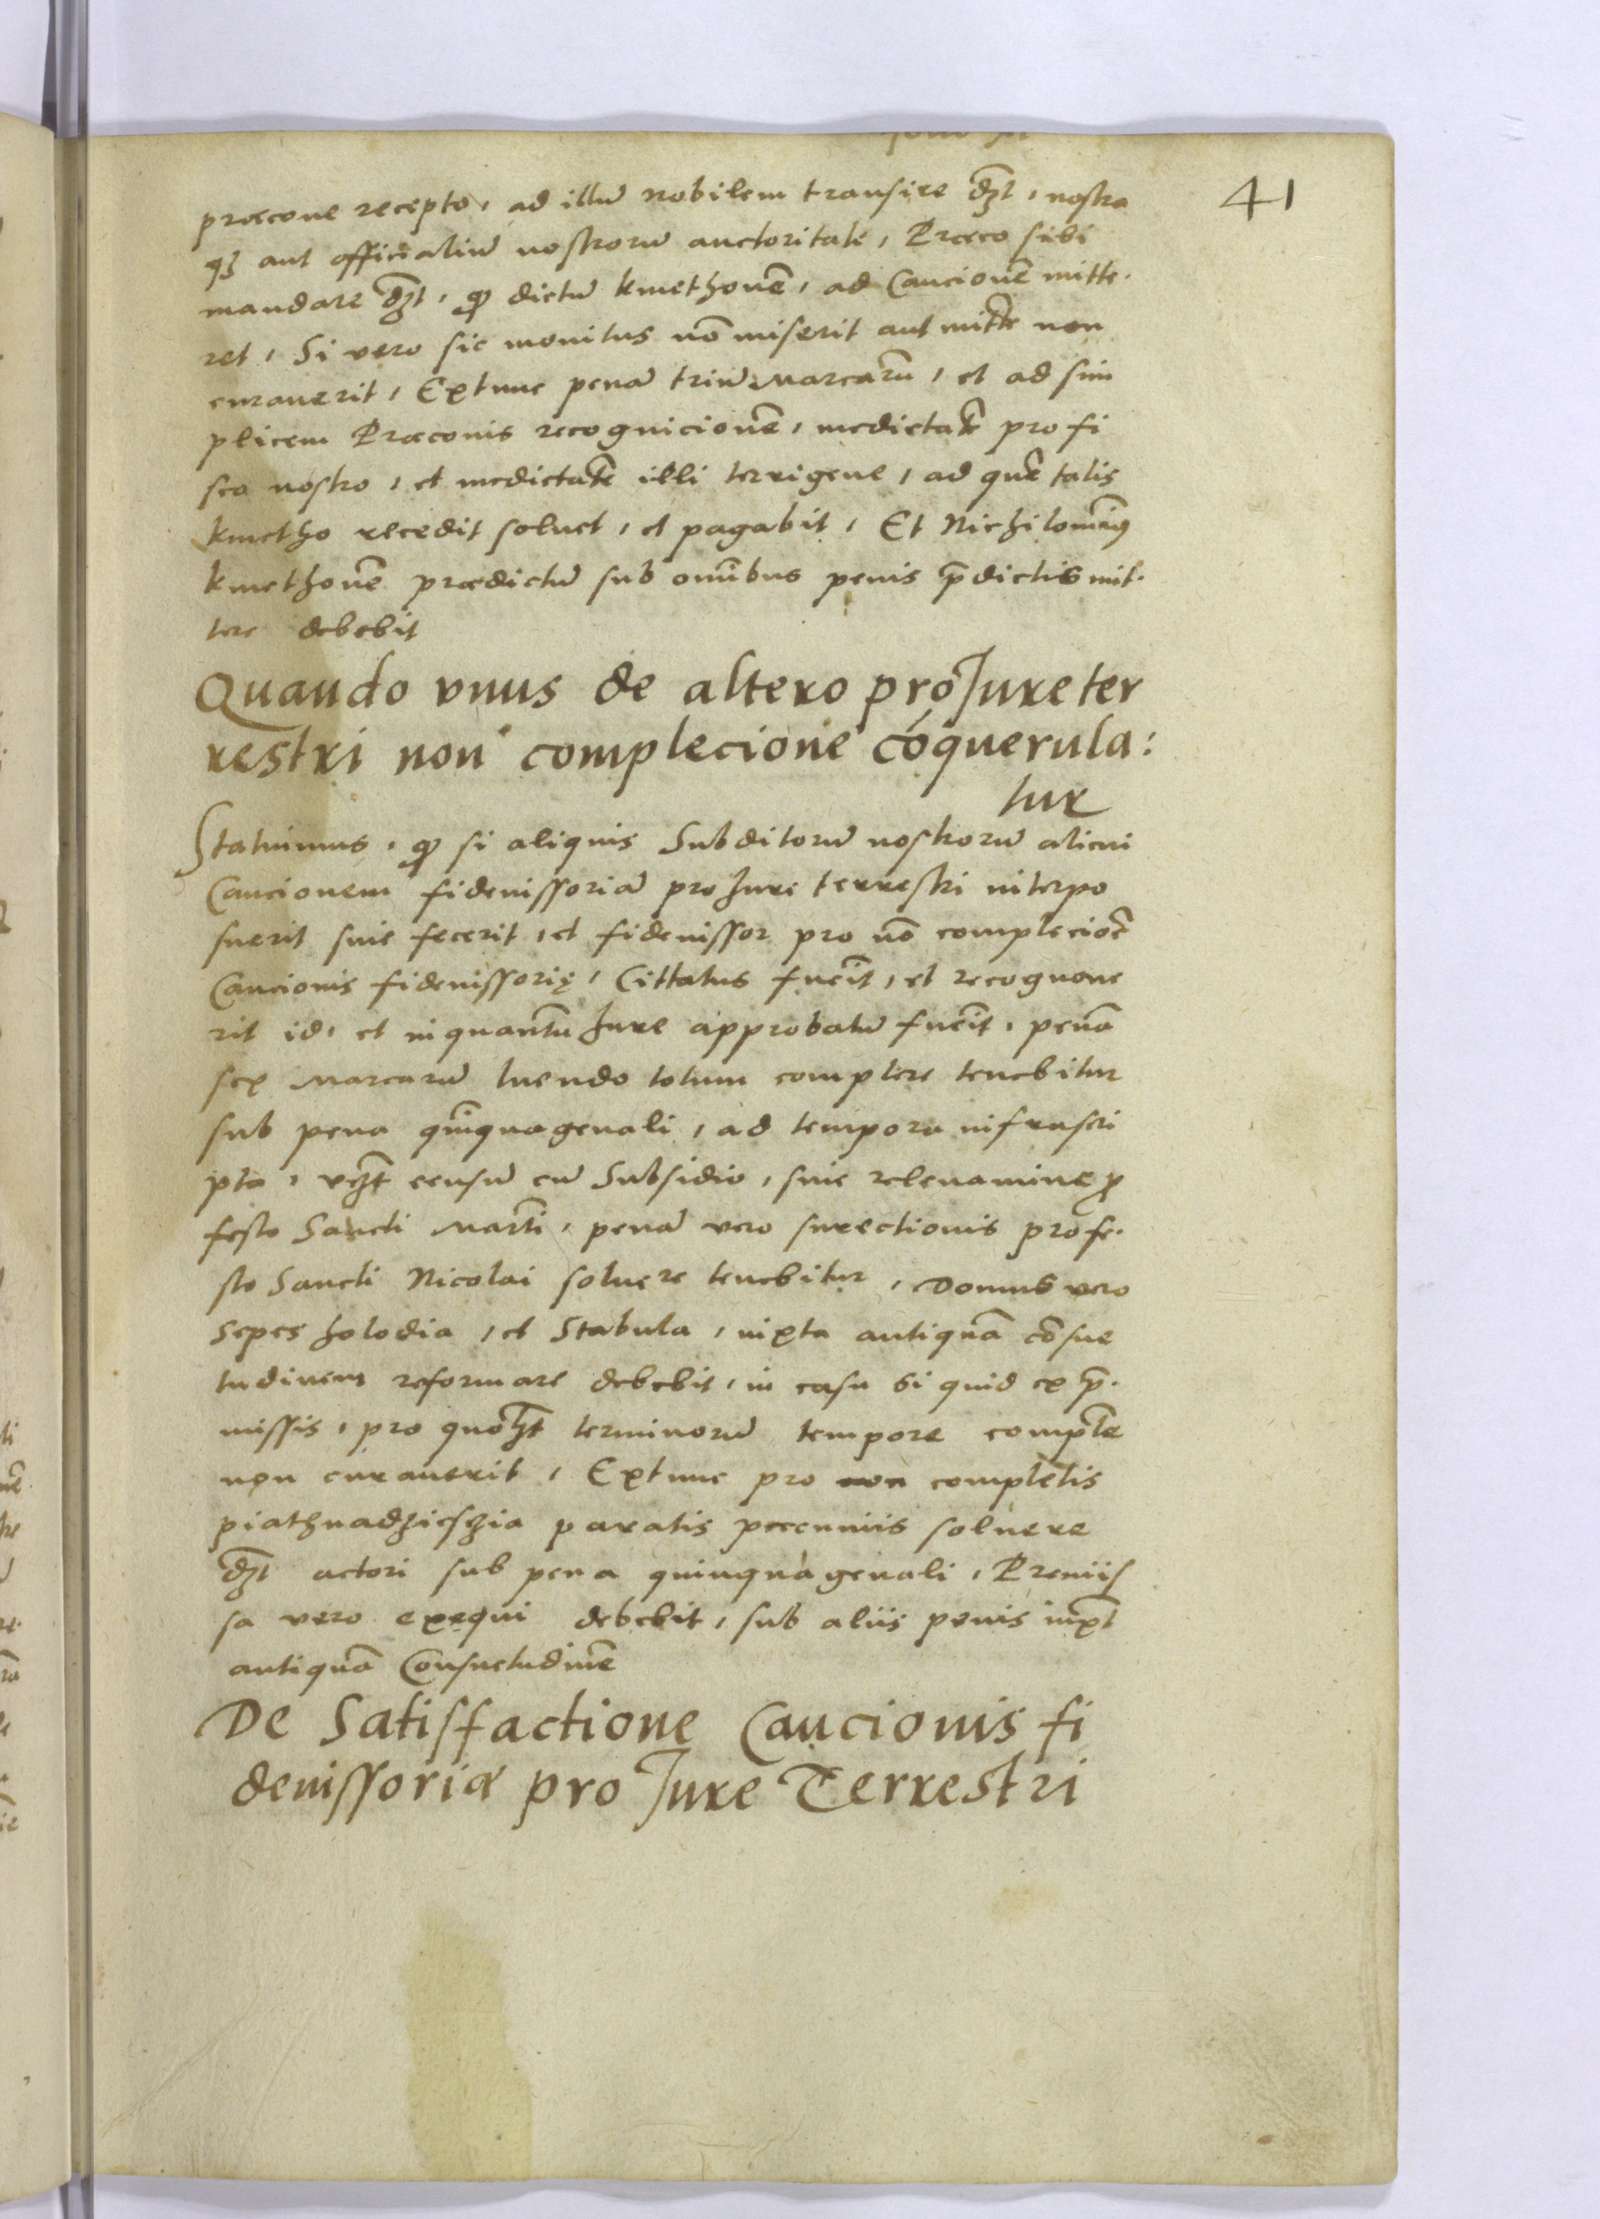 41
præcone recepto, ad illū nobilem transire dʒt, nostra
qʒ aut officialiū nostrorū auctoritate, Præco sibi
mandare dʒt, qȝ dictū kmethonē, ad Caucionē mitte.
ret, Si vero sic monitus nō miserit aut mitte non
curauerit, Extunc penā triū Marcarū, et ad sim
plicem Præconis recognicionē, medietatē pro fi
sco nostro, et medietatē illi terrigene, ad quē talis
kmetho recedit soluet, et pagabit, Et Nichilominꝰ
kmethonē prædictū sub omībus penis p̄dictis mit.
tere debebit
Quando vnus de altero pro Jure ter
restri non complecione cōquerula:
tur
Statuimus, qȝ si aliquis Subditorū nostrorū alicui
Caucionem fideiussoriā pro Jure terrestri interpo
suerit siue fecerit, et fideiussor pro nō complecioē
Caucionis fideiussorię, Cittatus fueīt, et recognoue
rit id, et inquantū Jure approbatū fueīt, penā
sex Marcarū luendo totum complere tenebitur
sub pena qūiquagenali, ad tempora infrascri
pta, vʒt censū cū Subsidio, siue releuamine ꝓ
festo Sancti Martī, penā vero surectionis pro fe.
sto Sancti Nicolai soluere tenebitur, Domus vero
sepes holodia, et Stabula, iuxta antiquā cōsue
tudinem reformare debebit, in casu si quid ex p̄.
missis, pro quolʒt terminorū tempore complē
non curauerit, Extunc pro non completis
piathnadʒiesʒia paratis peccuniis soluere
dʒt actori sub pena quinquagenali, Premiis
sa vero exequi debebit, sub aliis penis iuxt
antiquā Consuetudinē
De Satisfactione Caucionis fi
deiussoriæ pro Jure Terrestri